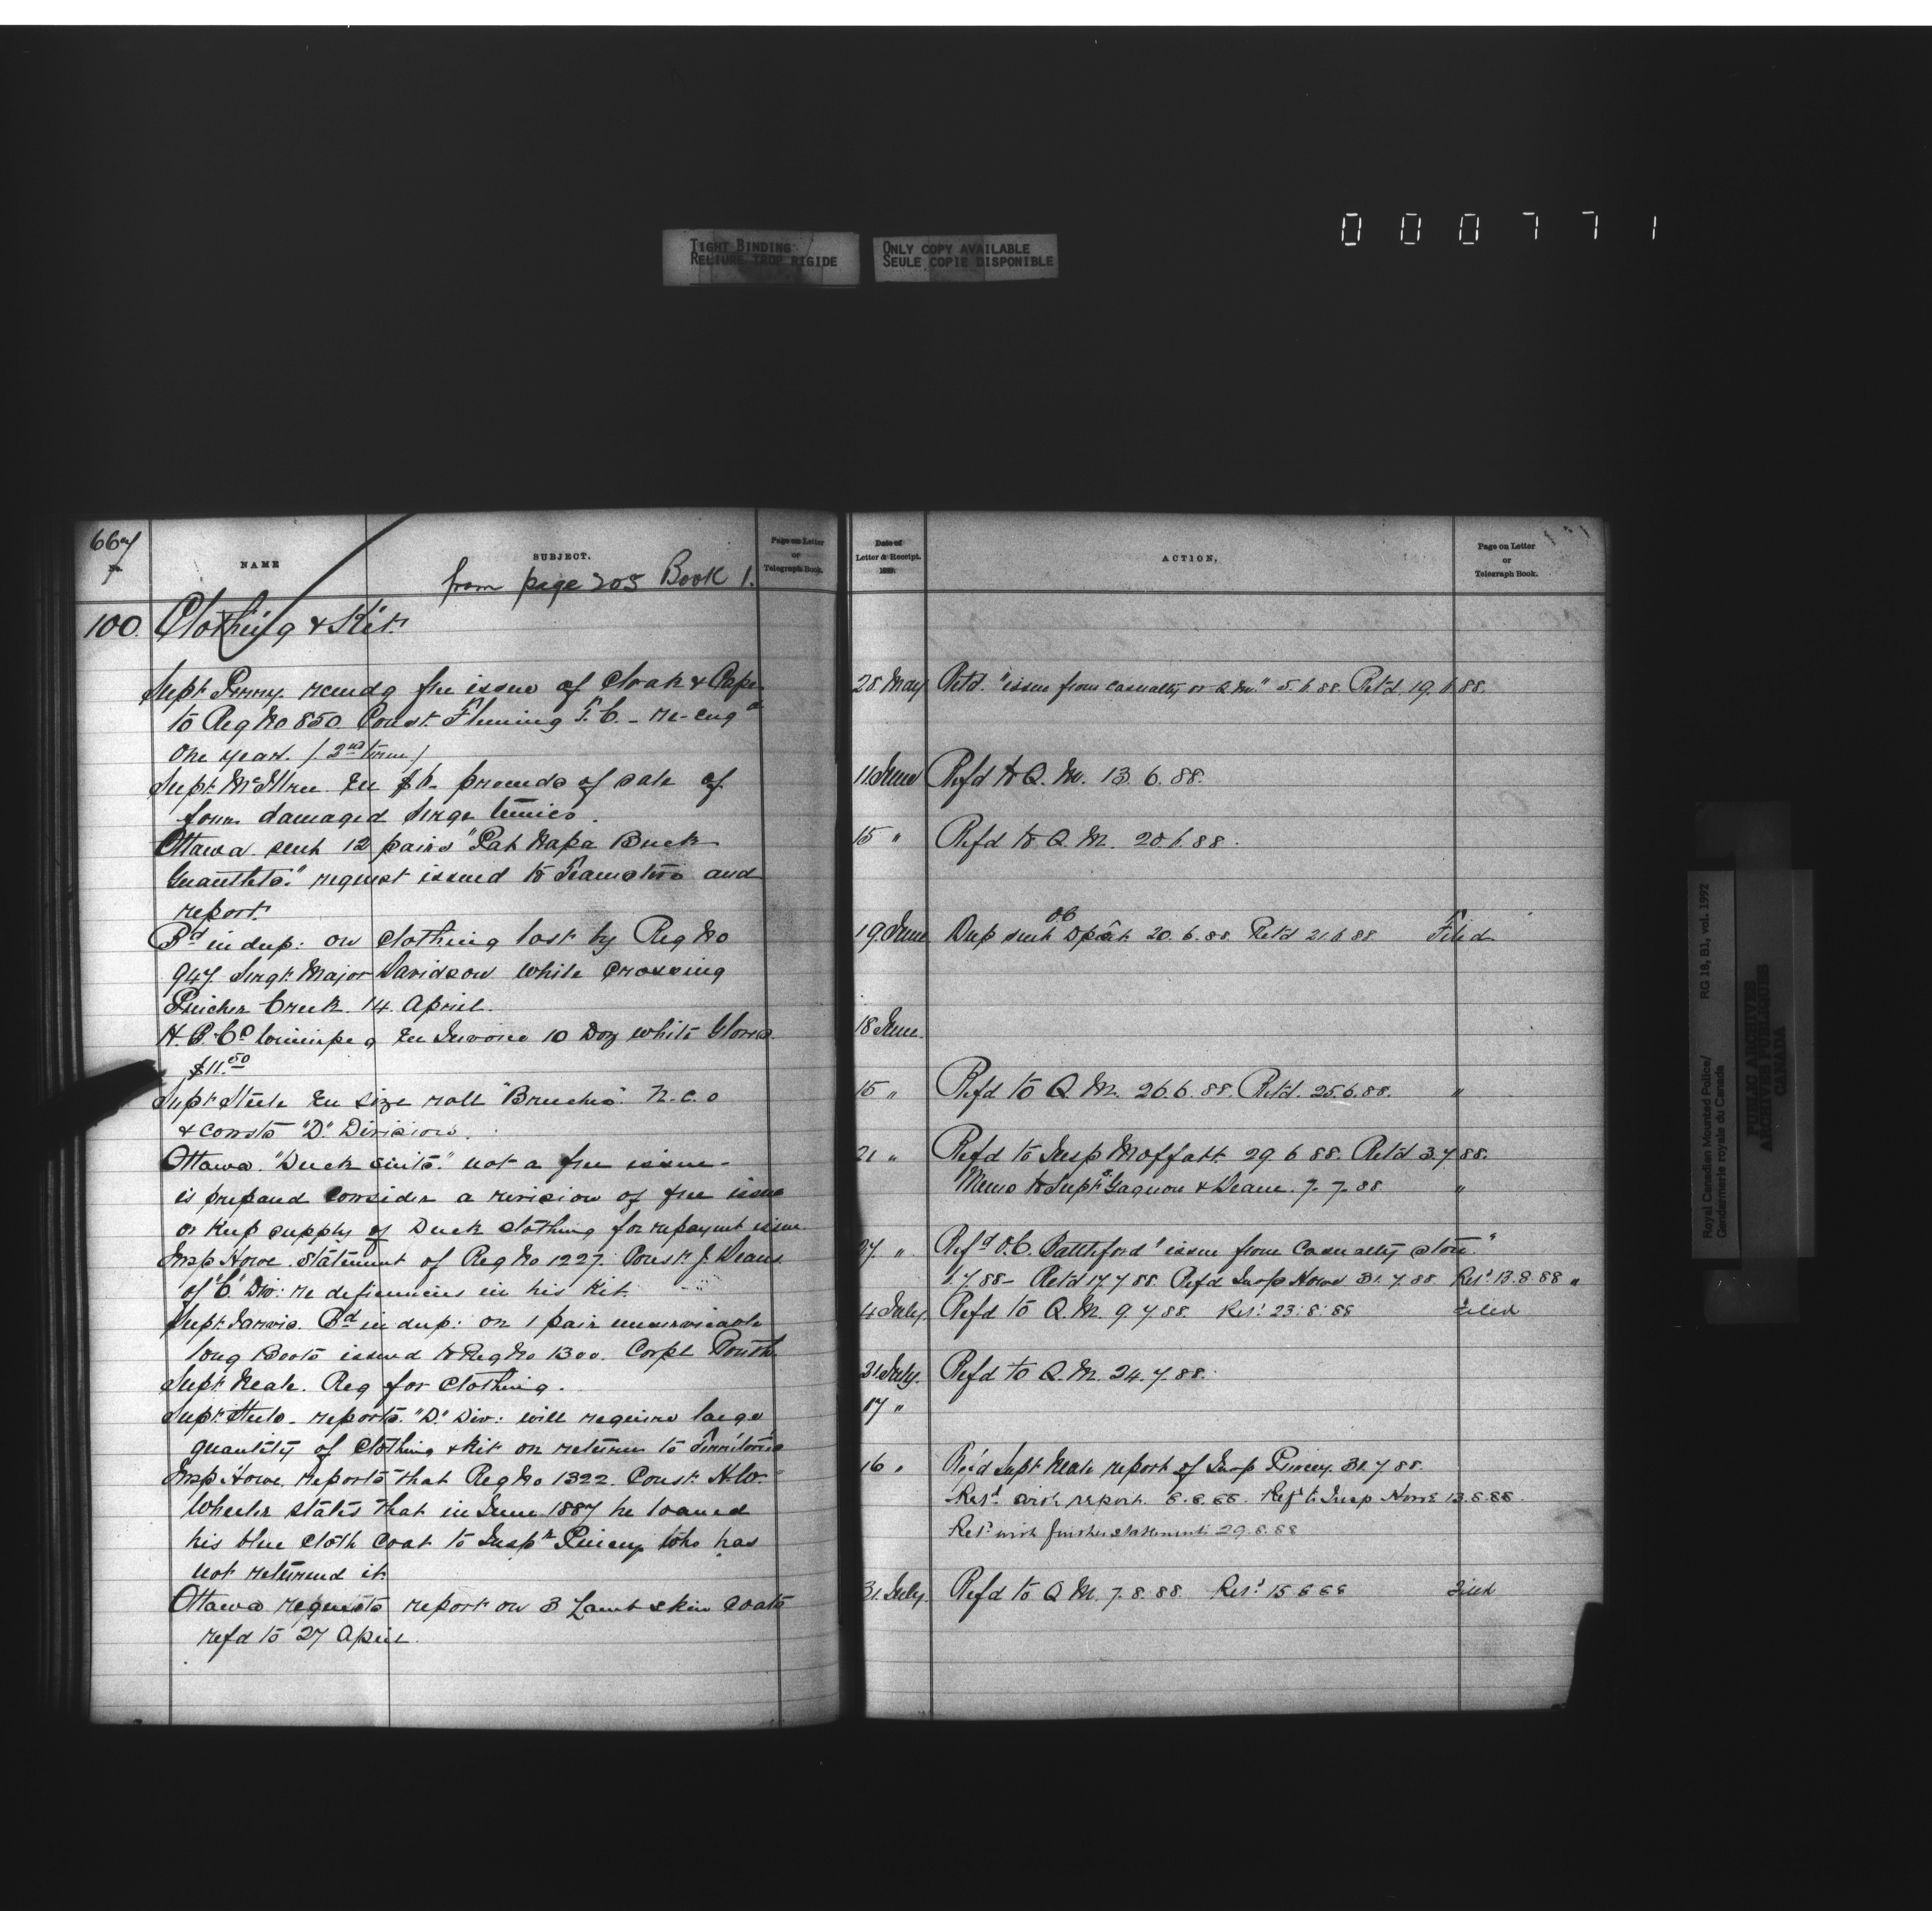 000771
TIGHT BINDING
RELIURE TROP RIGIDE
ONLY COPY AVAILABLE
SEULE COPIE DISPONIBLE
667
No.
NAME
SUBJECT.
Page on Letter
or
Telegraph Book.
from page 205 Book 1.
100. Clothing & Kit.
Supt Perry recmds free issue of Cloak & Cape
to Reg No 850. Const. Fleming T. C. - re-engd
One year. (2nd term)
Supt McIllree En $6. proceeds of sale of
four damaged Serge tunics.
Ottawa sent 12 pairs "Pat Napa Buck
Guantlets." request issued to Teamsters and
report.
Bd in dup: on clothing lost by Reg No
947. Sergt. Major Davidson while crossing
Pincher Creek. 14. April.
H. B. Co Winnipeg En Invoice 10 Doz white Gloves.
$11.50
Supt Steele En size roll "Breeches" N.C.O
& Consts "D." Division.
Ottawa. "Duck suits." not a free issue -
is prepared consider a revision of free issue
or keep supply of Duck clothing for repayment issue.
Insp Howe. Statement of Reg No 1227. Const. J. Deans
of "C" Div: re deficiencies in his kit.
Supt Jarvis. Bd in dup: on 1 pair unserviceable
long Boots issued to Reg No 1300. Corpl
Supt Neale. Req for Clothing.
Supt Steele - reports. "D." Div: will require large
quantity of Clothing & Kit on return to Territories
Insp Howe. reports that Reg No 1322. Const. H. W.
Wheeler states that in June 1887 he loaned
his blue cloth coat to Inspr Piercy who has
not returned it.
Ottawa requests report on 3 Lamb skin coats
refd to 27 April.
Date of
Letter & Receipt.
188
ACTION.
Page on Letter
or
Telegraph Book.
28. May Retd. "issue from casualty or Q.M." 5.6.88. Retd. 19.6.88.
11. June Refd to Q. M. 13. 6. 88.
15 " Refd to Q. M. 20.6.88.
O.C
19. June Dup sent Dpat 20. 6. 88. Retd 21.6.88 Filed
18 June.
15 " Refd to Q. M. 20.6.88. Retd. 25.6.88. "
21 " Refd to Insp Moffatt. 29. 6. 88. Retd 3.7.88.
Memo to Supts Gagnon & Deane. 7. 7. 88 "
27 " Refd O.C. Battleford "issue from Casualty store."
1.7.88 - Retd 17.7.88. Refd Insp Howe 31.7.88 Retd 13.8.88 "
4 July. Refd to Q. M. 9.7.88. Retd 23.8.88 Filed
21 July. Refd to Q. M. 24.7.88.
17 "
16 " Refd Supt Neale report of Insp Piercy 31.7.88.
Retd with report. 8.8.88. Refd to Insp Howe 13.8.88.
Retd with further statement 29.8.88
31. July. Refd to Q. M. 7. 8. 88. Retd 15 8 88 Filed
Royal Canadian Mounted Police/
Gendarmerie royale du Canada
RG 18, B1, vol. 1992
PUBLIC ARCHIVES
ARCHIVES PUBLIQUES
CANADA